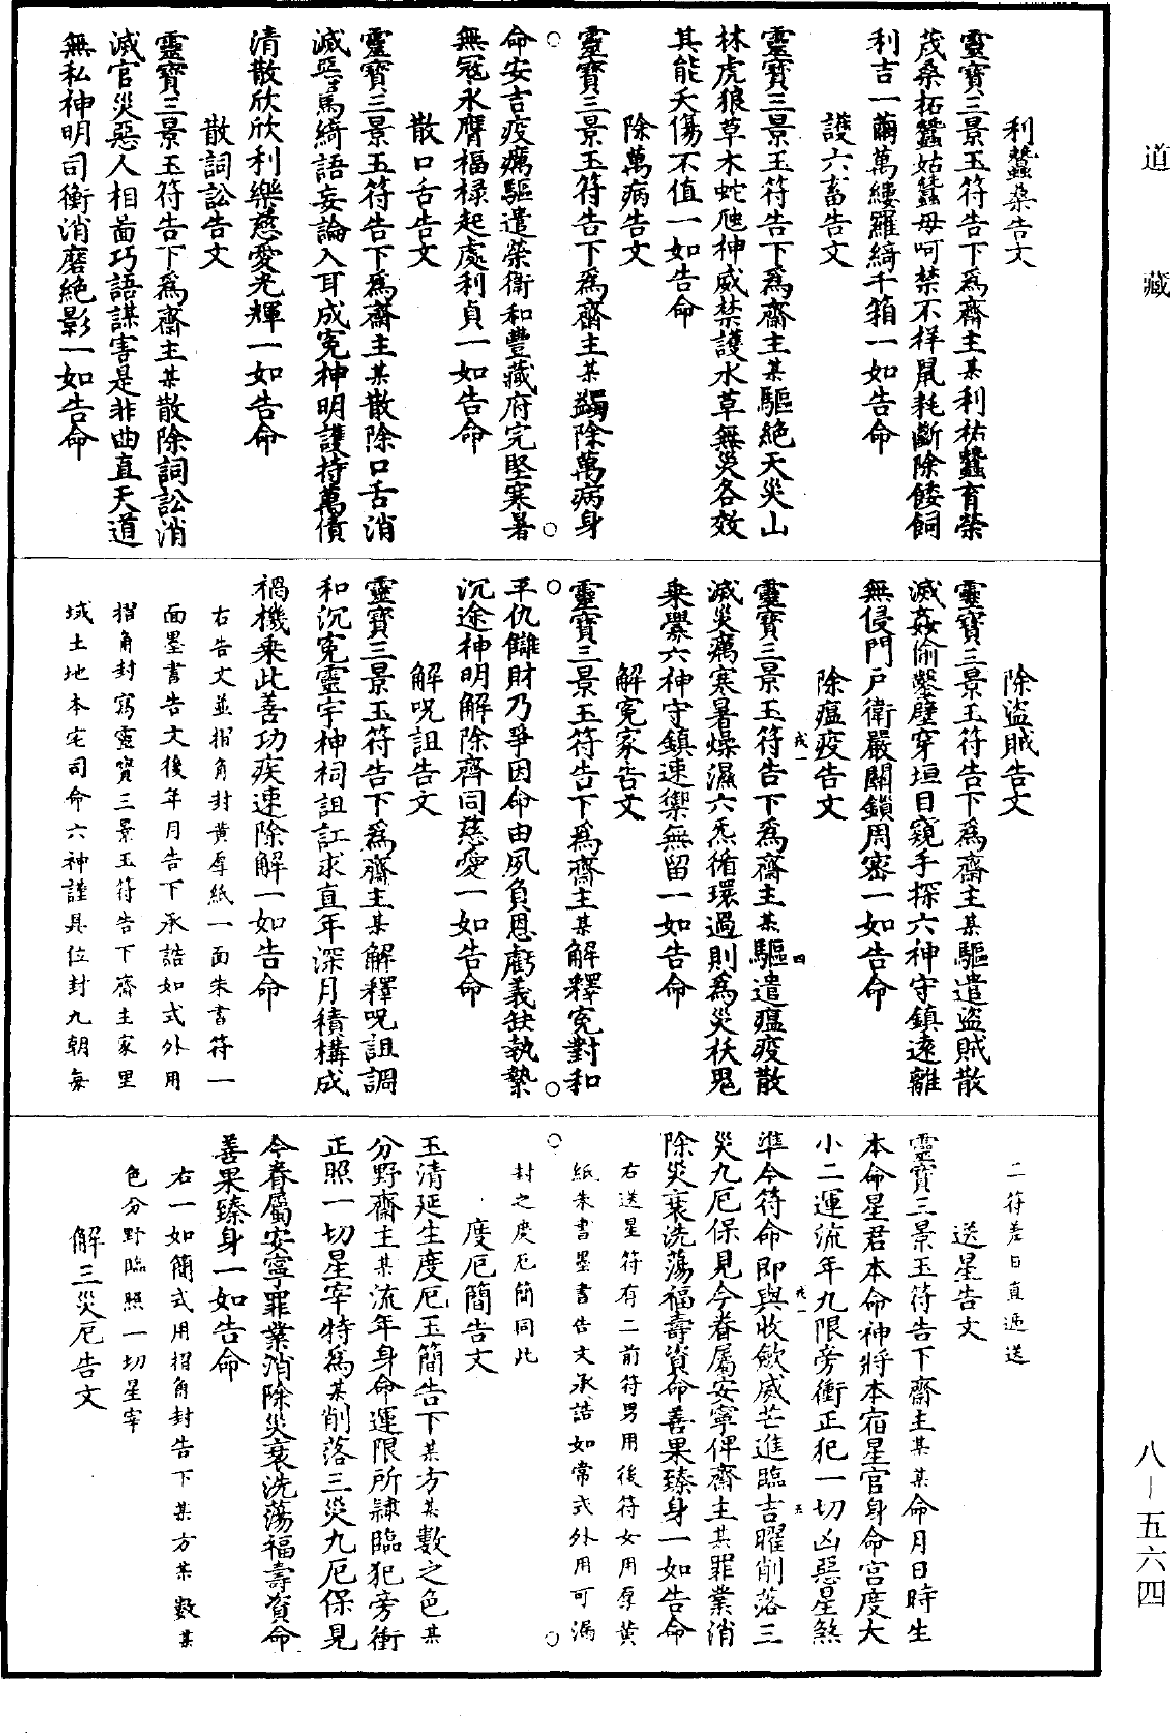 道藏
利蠶桑告文
靈寶三景玉符告下爲齋主某利祐蠶育榮
茂桑柘蠶姑蠶母呵禁不祥鼠耗斷除餧飼
利吉一繭萬縷羅綺千箱一如告命
護六畜告文
靈寶三景玉符告下爲齋主某驅絕天災山
林虎狼草木蛇虺神威禁護水草無災各效
其能夭傷不值一如告命
除萬病告文
靈寶三景玉符告下爲齋主某蠲除萬病身
命安吉疫癘驅遣榮衛和豐藏府完堅寒暑
無冦永膺福祿起處利貞一如告命
散口舌告文
靈寶三景玉符告下爲齋主某散除口舌消
滅惡罵綺語妄論入耳成冤神明護持萬債
清散欣欣利樂慈愛光輝一如告命
散詞訟告文
靈寶三景玉符告下爲齋主某散除詞訟消
滅官災惡人相啚巧語謀害是非曲直天道
無私神明司衡消磨絕影一如告命
除盜賊告文
靈寶三景玉符告下爲齋主某驅遣盜賊散
滅姦偷鑿壁穿垣目窺手探六神守鎮遠離
無侵門戶衛嚴關鎖周密一如告命
除瘟疫告文
靈寶三景玉符告下爲齋主某驅遣瘟疫散
滅災癘寒暑燥濕六炁循環過則爲災妖鬼
乘釁六神守鎮速禦無留一如告命
解冤家告文
靈寶三景玉符告下爲齋主某解釋冤對和
平仇讎財乃爭因命由夙負恩虧義缺執縶
沉途神明解除齊同慈愛一如告命
解呪詛告文
靈寶三景玉符告下爲齋主某解釋呪詛調
和沉冤靈宇神祠詛訌求直年深月積構成
禍機乘此善功疾速除解一如告命
右告文並摺角封黃厚紙一面朱書符一
面墨書告文後年月告下承誥如式外用
摺角封寫靈寶三景玉符告下齋主家里
域土地本宅司命六神謹具位封九朝每
二符差日直逓送
送星告文
靈寶三景玉符告下齋主某某命月日時生
本命星君本命神將本宿星官身命宮度大
小二運流年九限旁衝正犯一切凶惡星煞
準今符命即與收歛威芒進臨吉曜削落三
災九厄保見今眷屬安寧俾齋主某罪業消
除災衰洗蕩福壽資命善果臻身一如告命
右送星符有二前符男用後符女用厚黃
紙朱書墨書告文承誥如常式外用可漏
封之度厄簡同此
度厄簡告文
玉清延生度厄玉簡告下某方某數之色某
分野齋主某流年身命運限所隸臨犯旁衝
正照一切星宰特爲某削落三災九厄保見
今眷屬安寧罪業消除災衰洗蕩福壽資命
善果臻身一如告命
右一如簡式用摺角封告下某方某數某
色分野臨照一切星宰
解三災厄告文
八－五六四